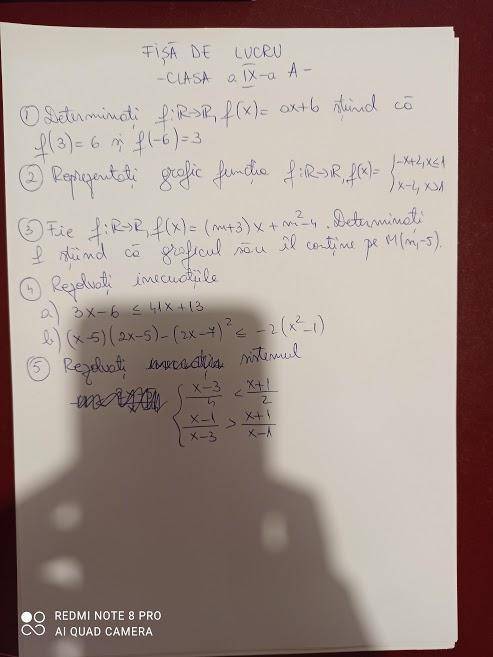 FIȘĂ DE LUCRU
-CLASA a IX-a A-
① Determinați f:R→R, f(x)= ax+b știind că
f(3)=6 și f(-6)=3
② Reprezentați grafic funcția f:R→R, f(x)= { -x+2, x≤1
x-4, x>1
③ Fie f:R→R, f(x)= (m+3)x + m²-4. Determinați
f știind că graficul său îl conține pe M(m,-5).
④ Rezolvați inecuațiile
a) 3x-6 ≤ 41x+13
b) (x-5)(2x-5)-(2x-7)² ≤ -2(x²-1)
⑤ Rezolvați sistemul
{ (x-3)/4 < (x+1)/2
(x-1)/(x-3) > (x+1)/(x-1)
REDMI NOTE 8 PRO
AI QUAD CAMERA